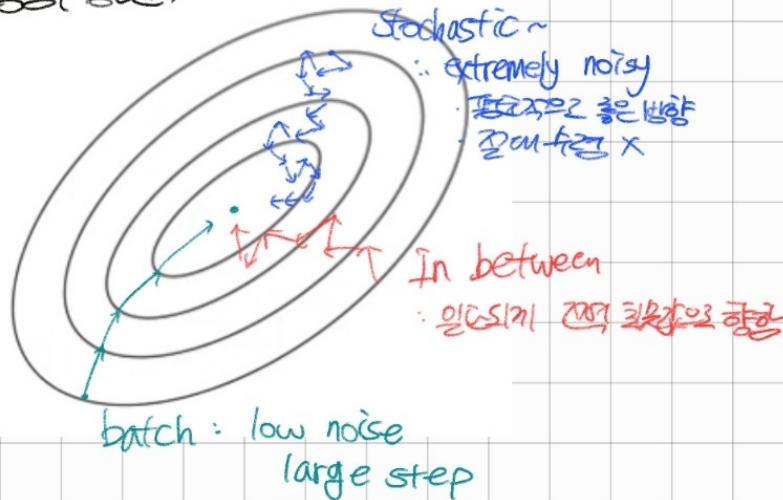 Stochastic ~
: extremely noisy
· 좋은 방향
· 절대 수렴 X
In between
: 전역 최솟값으로 향함
batch : low noise
large step